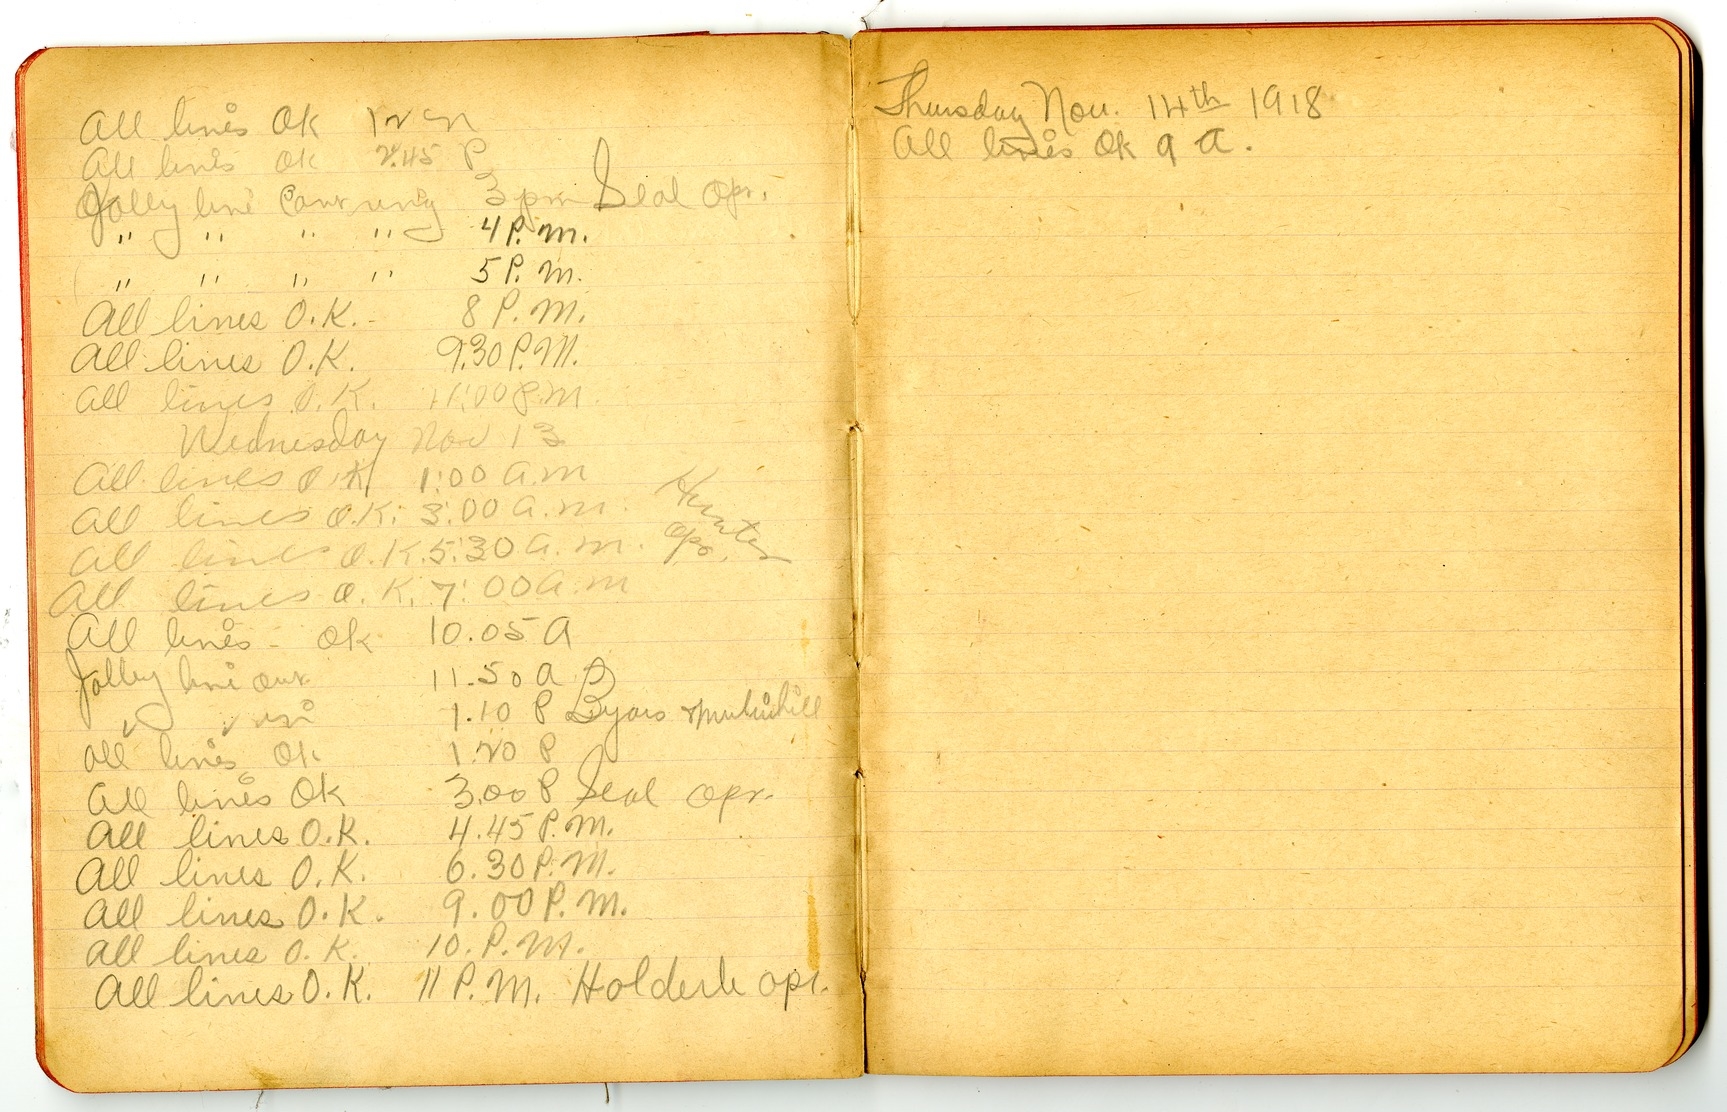 All lines Ok 12 n
All lines ok 2.45 P
Jolley line 3 pm Seal Opr.
" " " " 4 P.M.
" " " " 5 P.M.
All lines O.K. 8 P.M.
All lines O.K. 9.30 P.M.
All lines O.K. 11:00 P.M.
Wednesday Nov 13
All lines O.K. 1:00 a.m
All lines O.K. 3:00 a.m.
All lines O.K. 5:30 a.m. Hunter opr.
All lines O.K. 7:00 a.m
All lines - Ok 10.05 A
Jolley line out 11.50 A
" " in 1.10 P Byars
all lines Ok 1.20 P
All lines Ok 3.00 P Seal opr.
All lines O.K. 4.45 P.M.
All lines O.K. 6.30 P.M.
All lines O.K. 9.00 P.M.
All lines O.K. 10. P.M.
All lines O.K. 11 P.M. opr.
Thursday Nov. 14th 1918
All lines Ok 9 a.